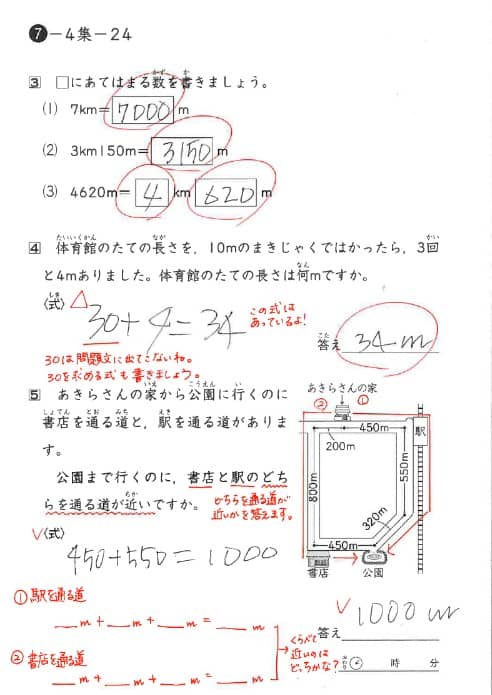 ❼－4集－24
3 □にあてはまる数を書きましょう。
(1) 7km=7000m
(2) 3km150m=3150m
(3) 4620m=4km620m
4 体育館のたての長さを，10mのまきじゃくではかったら，3回
と4mありました。体育館のたての長さは何mですか。
〈式〉 △
30+4=34
この式は
あっているよ!
答え 34m
30は問題文に出てこないね。
30を求める式も書きましょう。
5 あきらさんの家から公園に行くのに
書店を通る道と，駅を通る道がありま
す。
公園まで行くのに，書店と駅のどち
らを通る道が近いですか。
どちらを通る道が
近いかを答えます。
あきらさんの家
② ①
450m
200m
駅
800m
550m
320m
450m
書店
公園
〈式〉
450+550=1000
① 駅を通る道
__m+__m+__m=__m
② 書店を通る道
__m+__m+__m=__m
くらべて
近いのは
どっちかな?
答え 1000m
時 分